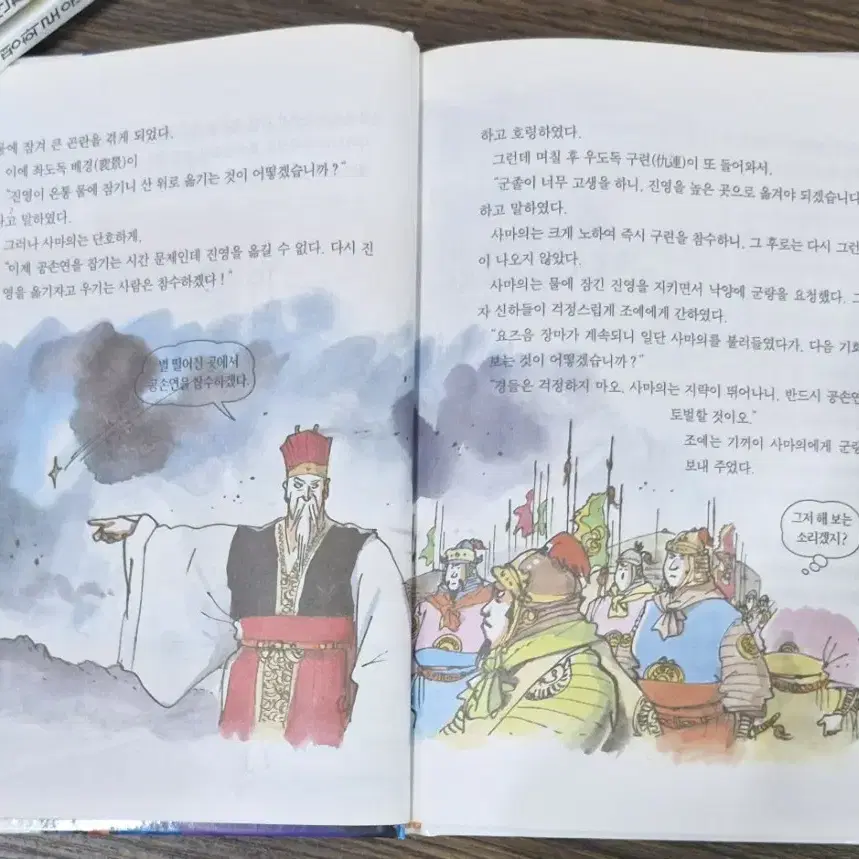 잠겨 큰 곤란을 겪게 되었다.
이에 좌도독 배경(裵景)이
"진영이 온통 물에 잠기니 산 위로 옮기는 것이 어떻겠습니까?"
라고 말하였다.
그러나 사마의는 단호하게,
"이제 공손연을 잡기는 시간 문제인데 진영을 옮길 수 없다. 다시 진
영을 옮기자고 우기는 사람은 참수하겠다!"
별 떨어진 곳에서
공손연을 참수하겠다.
하고 호령하였다.
그런데 며칠 후 우도독 구련(仇連)이 또 들어와서,
"군졸이 너무 고생을 하니, 진영을 높은 곳으로 옮겨야 되겠습니다
하고 말하였다.
사마의는 크게 노하여 즉시 구련을 참수하니, 그 후로는 다시 그런
이 나오지 않았다.
사마의는 물에 잠긴 진영을 지키면서 낙양에 군량을 요청했다. 그
자 신하들이 걱정스럽게 조예에게 간하였다.
"요즈음 장마가 계속되니 일단 사마의를 불러들였다가, 다음 기회
보는 것이 어떻겠습니까?"
"경들은 걱정하지 마오. 사마의는 지략이 뛰어나니, 반드시 공손연
토벌할 것이오."
조예는 기꺼이 사마의에게 군량
보내 주었다.
그저 해 보는
소리겠지?